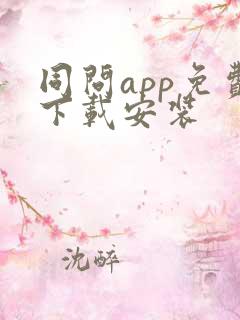 同問app免費
下載安裝
沈醉